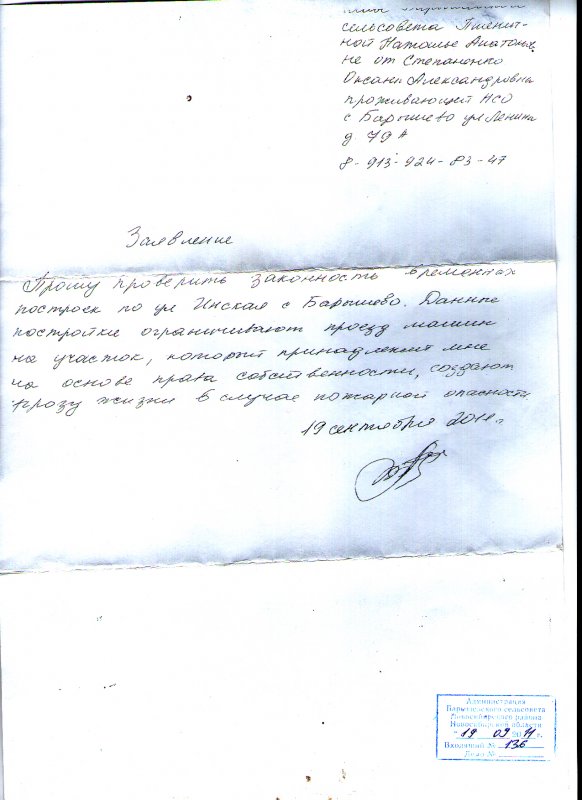 сельсовета Пшенит-
ной Наталье Анатолье
не от Степаненко
Оксаны Александровна
проживающий НСО
с Барышево ул Ленина
д. 79А
8-913-924-83-47
Заявление
Прошу проверить законность временных
построек по ул Инская с Барышево. Данные
постройки ограничивают проезд машин
на участок, который принадлежит мне
на основе права собственности, создают
угрозу жизни в случае пожарной опасности
19 сентября 2011 г
Администрация
Барышевского сельсовета
Новосибирского района
Новосибирской области
"19" 09 2011 г.
Входящий № 136
Дело №